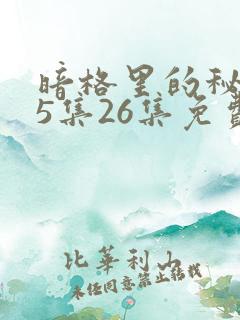 暗格里的秘
5集26集免费
比华利山
未经同意禁止转载